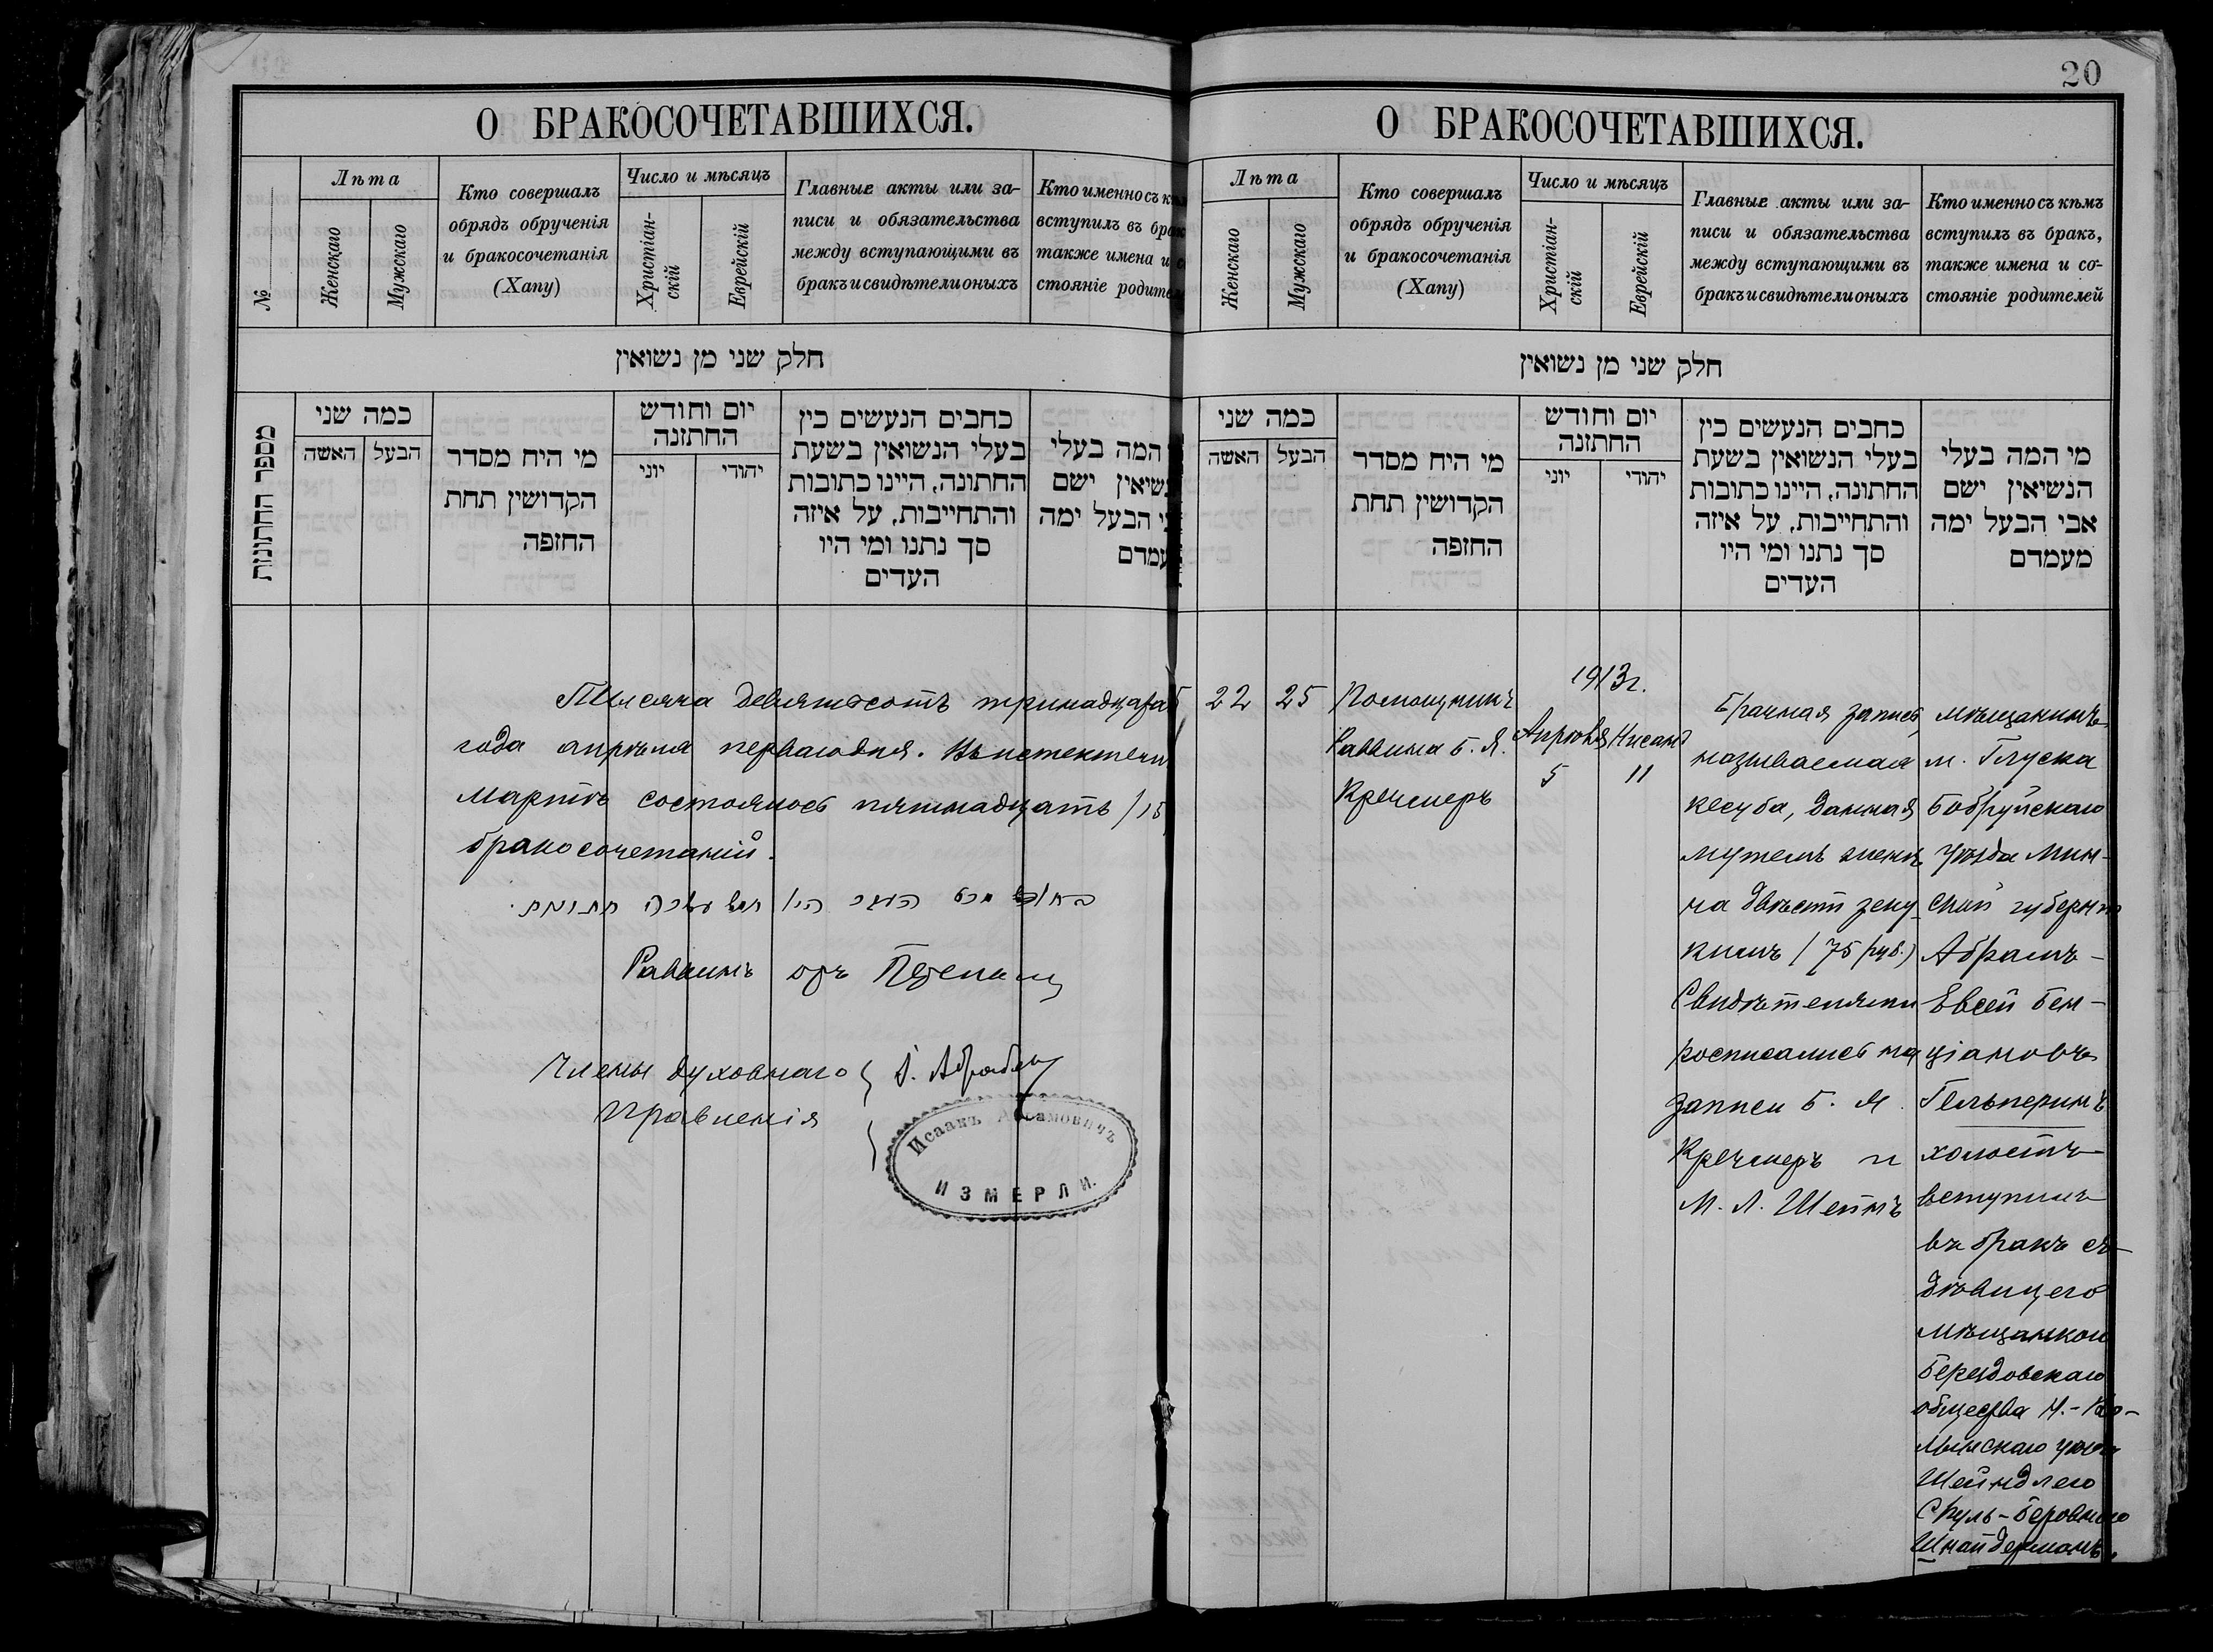 20
О БРАКОСОЧЕТАВШИХСЯ.
№
Лѣта
Женскаго
Мужскаго
Кто совершалъ
обрядъ обрученія
и бракосочетанія
(Хапу)
Число и мѣсяцъ
Христіан-
скій
Еврейскій
Главные акты или за-
писи и обязательства
между вступающими въ
бракъ и свидѣтели оныхъ
Кто именно съ
вступилъ въ
также имена и
стояніе
חלק שני מן נשואין
מספר החתונות
כמה שני
האשה
הבעל
מי היח מסדר
הקדושין תחת
החופה
יום וחודש
החתונה
יוני
יהודי
כתבים הנעשים בין
בעלי הנשואין בשעת
החתונה, היינו כתובות
והתחייבות, על איזה
סך נתנו ומי היו
העדים
המה בעלי
ישם
הבעל ימה
Тысяча девятьсотъ
года апрѣля перваго дня. Въ истекшемъ
Мартѣ состоялось пятнадцать /15
бракосочетаній.
Раввинъ
Члены духовнаго
Правленія
Исаакъ Абрамовичъ
ИЗМЕРЛИ.
О БРАКОСОЧЕТАВШИХСЯ.
Лѣта
Женскаго
Мужскаго
Кто совершалъ
обрядъ обрученія
и бракосочетанія
(Хапу)
Число и мѣсяцъ
Христіан-
скій
Еврейскій
Главные акты или за-
писи и обязательства
между вступающими въ
бракъ и свидѣтели оныхъ
Кто именно съ кѣмъ
вступилъ въ бракъ,
также имена и со-
стояніе родителей
חלק שני מן נשואין
כמה שני
האשה
הבעל
מי היח מסדר
הקדושין תחת
החופה
יום וחודש
החתונה
יוני
יהודי
כתבים הנעשים בין
בעלי הנשואין בשעת
החתונה, היינו כתובות
והתחייבות, על איזה
סך נתנו ומי היו
העדים
מי המה בעלי
הנשיאין ישם
אבי הבעל ימה
מעמדם
22
25
Помощникъ
Раввина Б. Я.
Кречмеръ
1913г.
Апрѣля
5
Нисанъ
11
Брачная запись
называемая
кесуба, данная
мужемъ женѣ
на двѣсти зеку-
кимъ (75 руб.)
Свидѣтелями
росписались на
записи Б. Я.
Кречмеръ и
М. Л. Штейнъ
мѣщанинъ
м. Глуска
Бобруйскаго
уѣзда Мин-
ской губерніи
Абрамъ-
Евсей Бен-
ціановъ
Гельперинъ
холостъ
вступилъ
въ бракъ съ
дѣвицею
мѣщанкою
Берездовскаго
общества Н.-Во-
лынскаго уѣзда
Шейндлею
Сруль-Беровною
Шнайдерманъ.